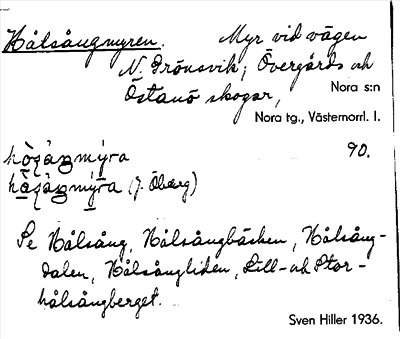 Hålsångmyren. Myr vid vägen
N. Grönsvik; Övergårds och
Östanö skogar, Nora s:n
Nora tg., Västernorrl. l.
90.
(J. Öberg)
Se Hålsång, Hålsångbäcken, Hålsång-
dalen, Hålsångliden, Lill- och Stor-
hålsångberget.
Sven Hiller 1936.